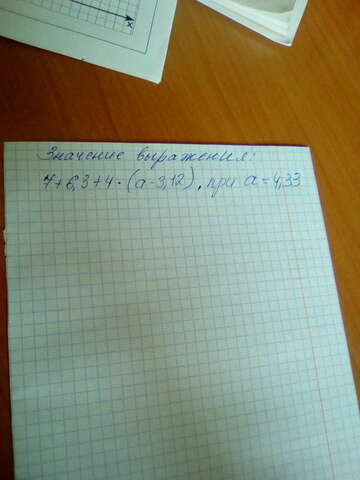 Значение выражения:
7+6,3+4·(а-3,12), при а=4,33
x